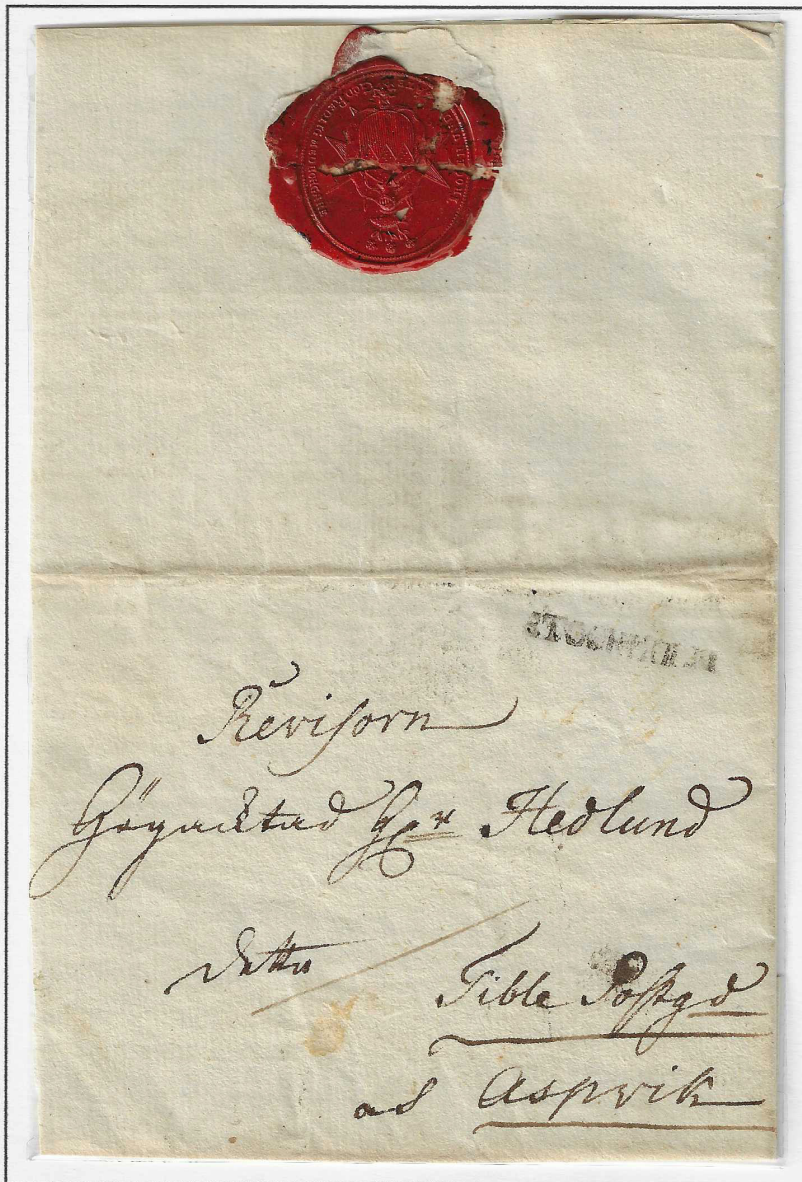 Revisorn
Högacktad Hr Hedlund
detta
Tible Postgd
ad Aspvik